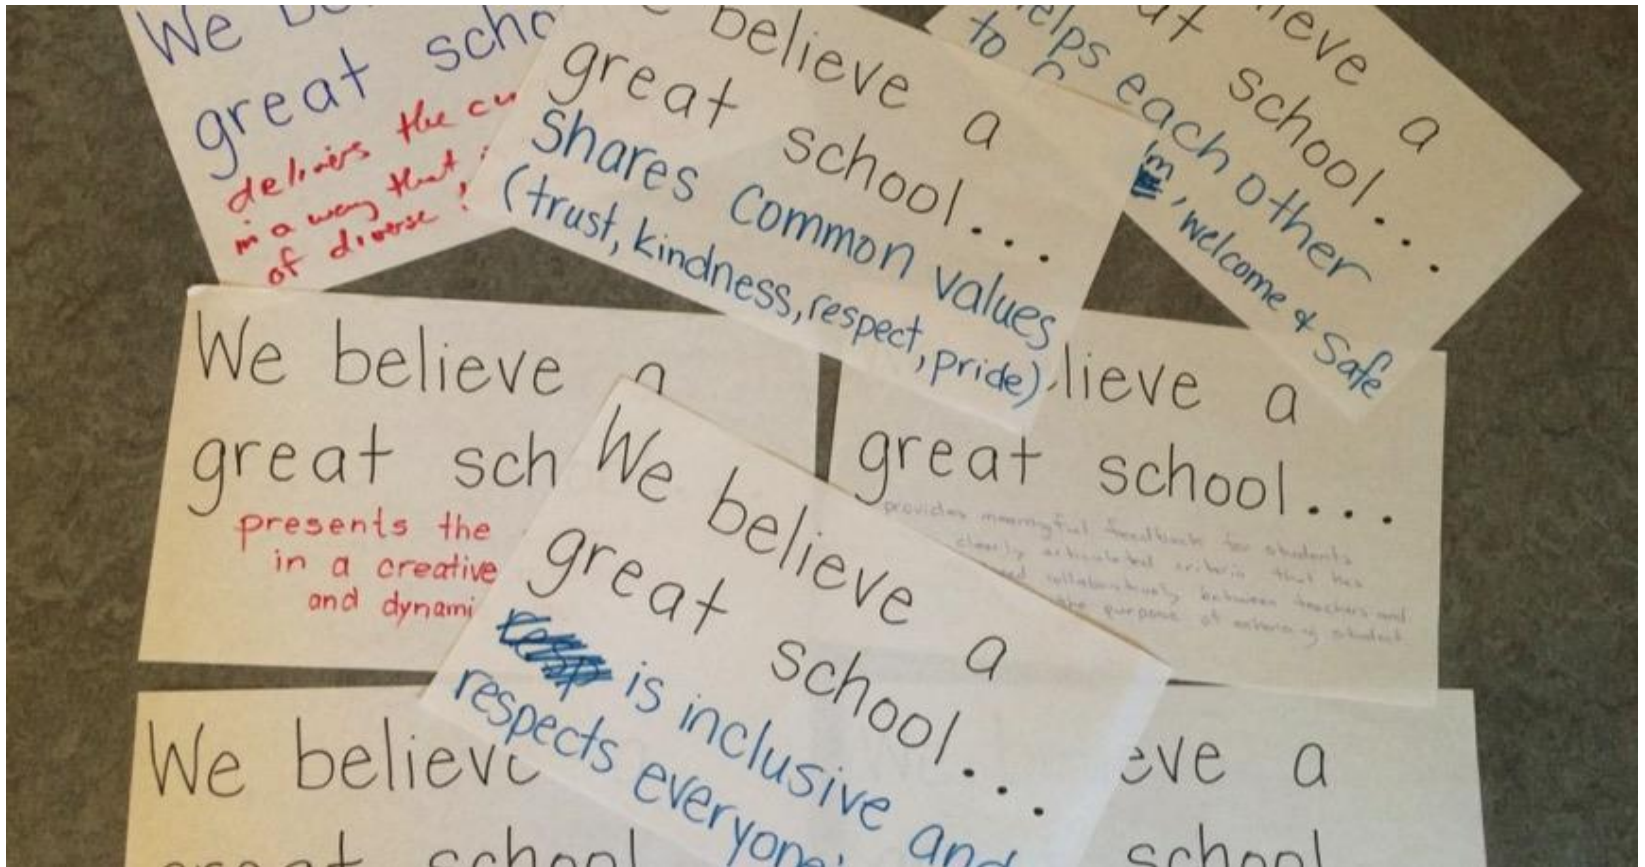 We
great scho
delivers the cu
in a way that
of diverse
believe a
great school...
Shares Common values
(trust, kindness, respect, pride).
helps each other
to
, welcome & Safe
ieve a
at school...
We believe a
great sch
presents the
in a creative
and dynami
lieve a
great school...
provides meaningful feedback for students
clearly articulated criteria that has
collaboratively between teachers and
the purpose of student
We believe a
great school...
is inclusive and
respects everyone
We believe
great school
eve a
school